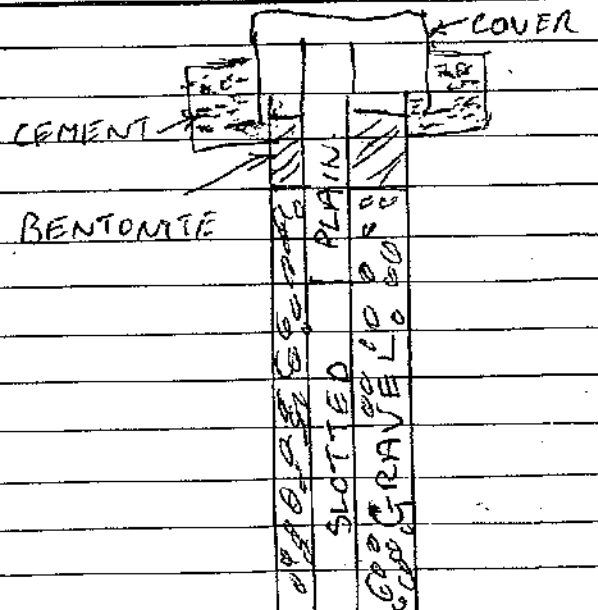 COVER
CEMENT
BENTONITE
PLAIN
SLOTTED
GRAVEL